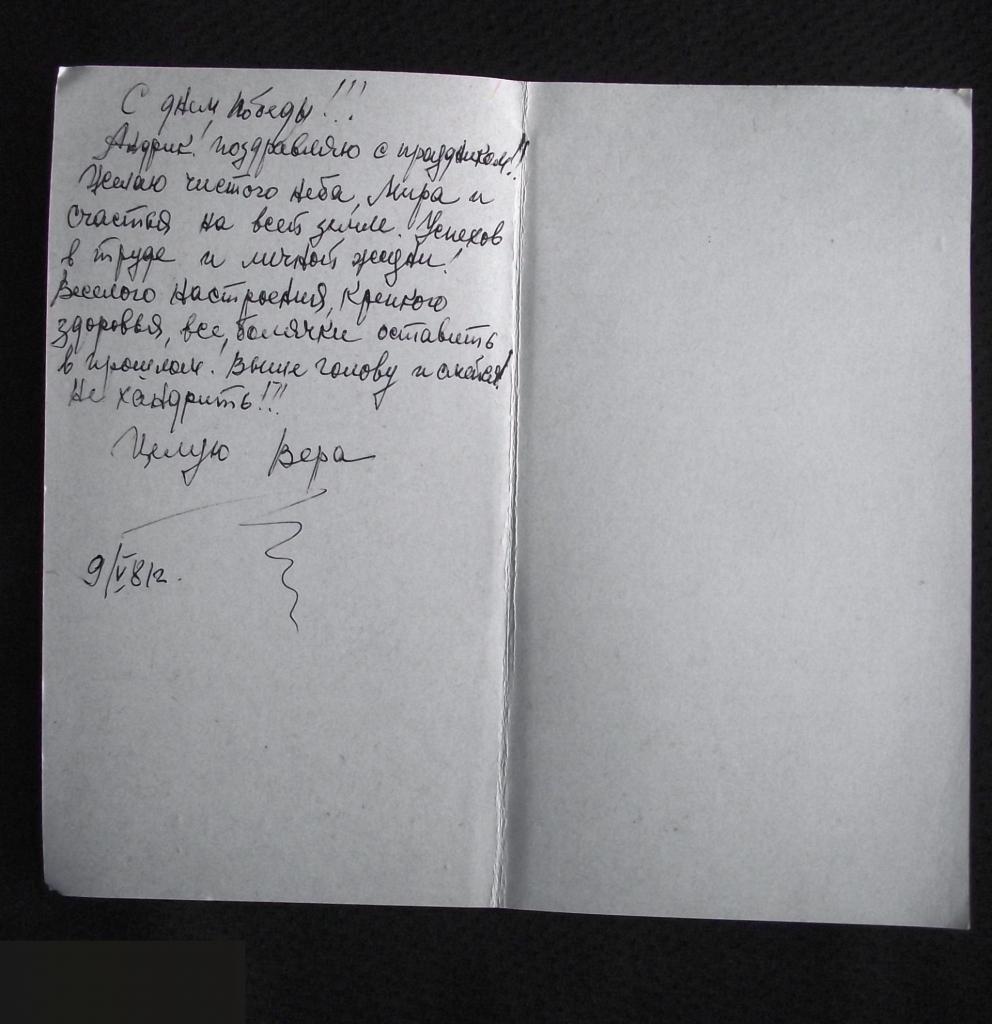 С днем Победы!!!
Андрик! поздравляю с праздником!!
Желаю чистого неба, Мира и
счастья на всей земле. Успехов
в труде и личной жизни!
Веселого настроения, Крепкого
здоровья, все болячки оставить
в прошлом! Выше голову и смейся!
Не хандрить!!!
Целую Вера
9/V 81г.